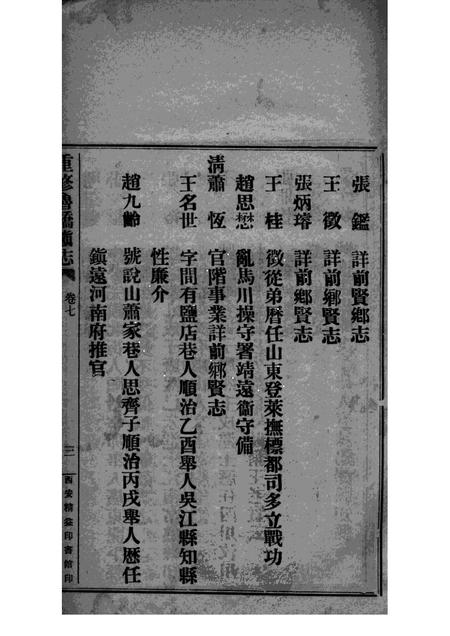 張鑑 詳前賢鄉志
王徵 詳前鄉賢志
張炳璿 詳前鄉賢志
王桂 徵從弟曆任山東登萊撫標都司多立戰功
趙思懋 亂馬川操守署靖遠衞守備
清蕭恆 官階事業詳前鄉賢志
王名世 字間有鹽店巷人順治乙酉舉人吳江縣知縣
性廉介
趙九齡 號說山蕭家巷人思齊子順治丙戌舉人歷任
鎭遠河南府推官
重修魯橋鎭志 卷七 三 西安精益印書館印